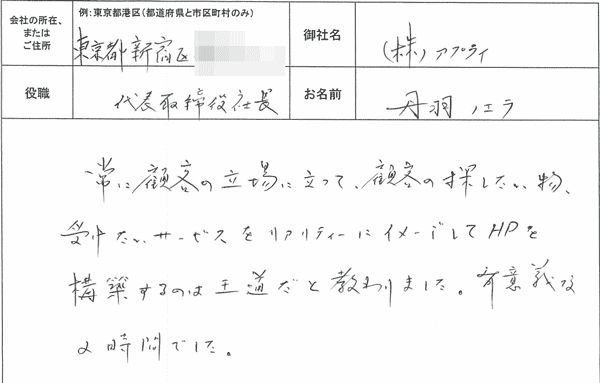 会社の所在、
または
ご住所
例：東京都港区（都道府県と市区町村のみ）
東京都新宿区
御社名
(株)アプライ
役職
代表取締役社長
お名前
丹羽ノエラ
常に顧客の立場に立って、顧客の探したい物、
受けたいサービスをリアリティーにイメージしてHPを
構築するのは王道だと教わりました。有意義な
2時間でした。